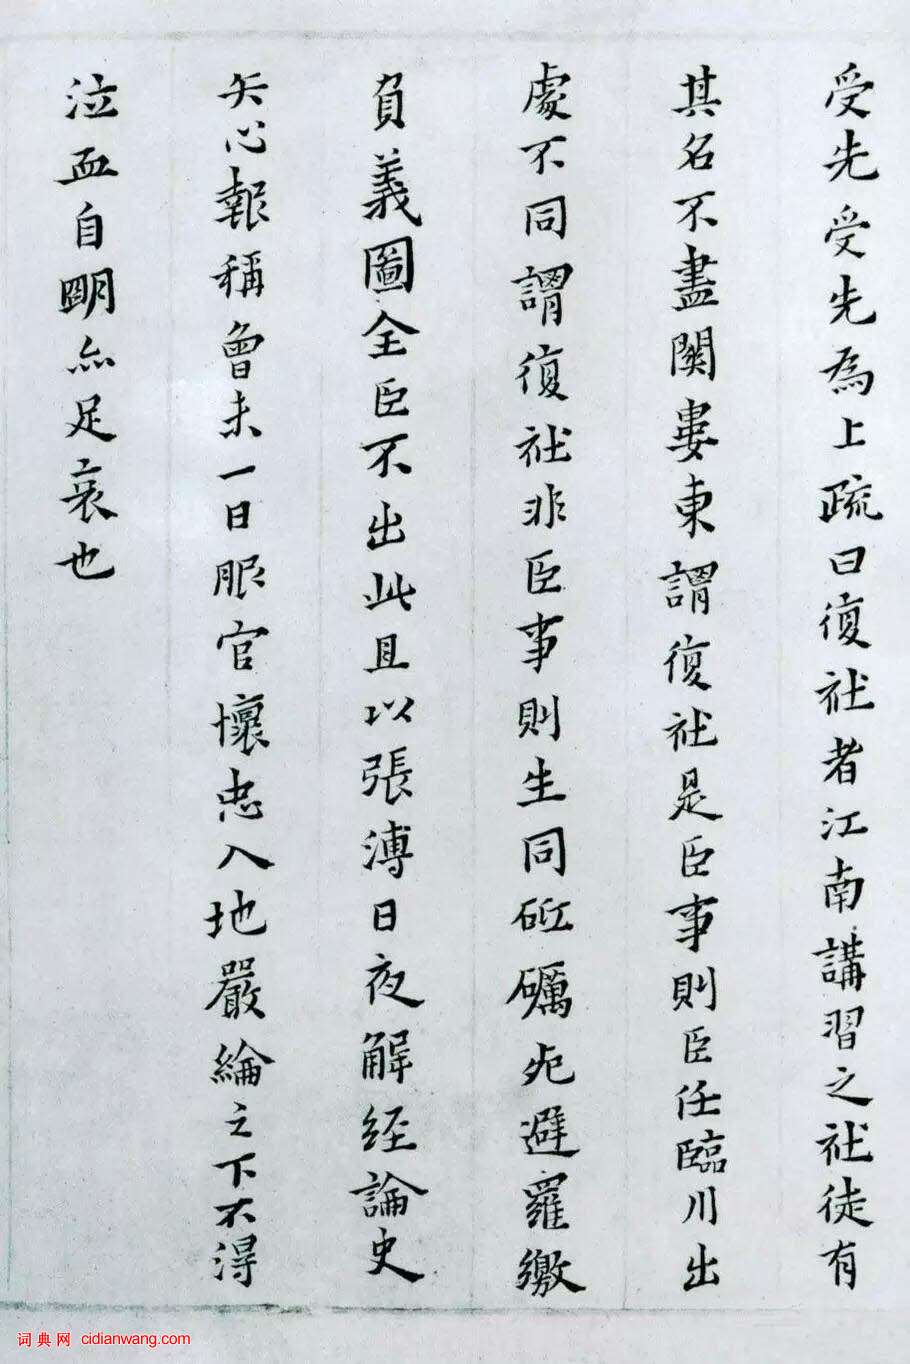 受先受先為上疏曰復社者江南講習之社徒有
其名不盡関婁東謂復社是臣事則臣任臨川出
處不同謂復社非臣事則生同砥礪死避羅繳
負義圖全臣不出此且以張溥日夜解經論史
矢心報稱曾未一日服官懷忠入地嚴綸之下不得
泣血自明亦足哀也
词典网 cidianwang.com